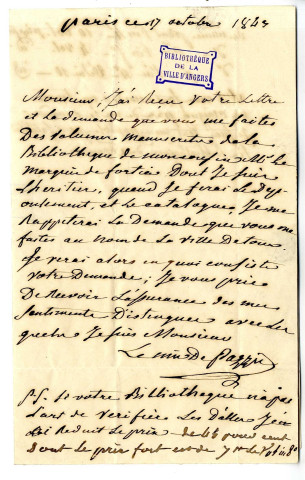 Paris ce 17 octobre 1843
BIBLIOTHÈQUE
DE LA
VILLE D'ANGERS
Monsieur, J'ai Recu votre Lettre
et La demande que vous me faites
Des volumes manuscrits de la
Bibliotheque de monsieur
marquis de fortia Dont Je suis
Lheritier, quand Je ferai Le Dep
ouillement, et Le catalogue, Je me
Rappellerai La Demande que vous me
faites au nom de La ville De
Je verai alors en quoi consiste
votre Demande; Je vous prie
De Recevoir L'assurance des mes
Sentiments Distingués avec Les
quels Je suis Monsieur
Le De
P.S. Si votre Bibliotheque n'a pas
Lart de verifier Les Dattes J'en
ai Reduit Le prix de 45 pour cent
Dont Le prix fort est de